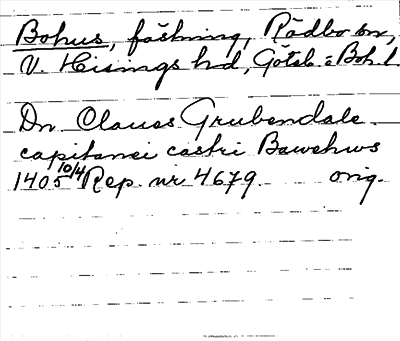 Bohus, fästning, Rödbo sn,
V. Hisings hd, Göteb. o Boh. l.
Dn Claues Grubendale.
capitanei castri Bawehws
1405 10/4 Rep. nr 4679. orig.